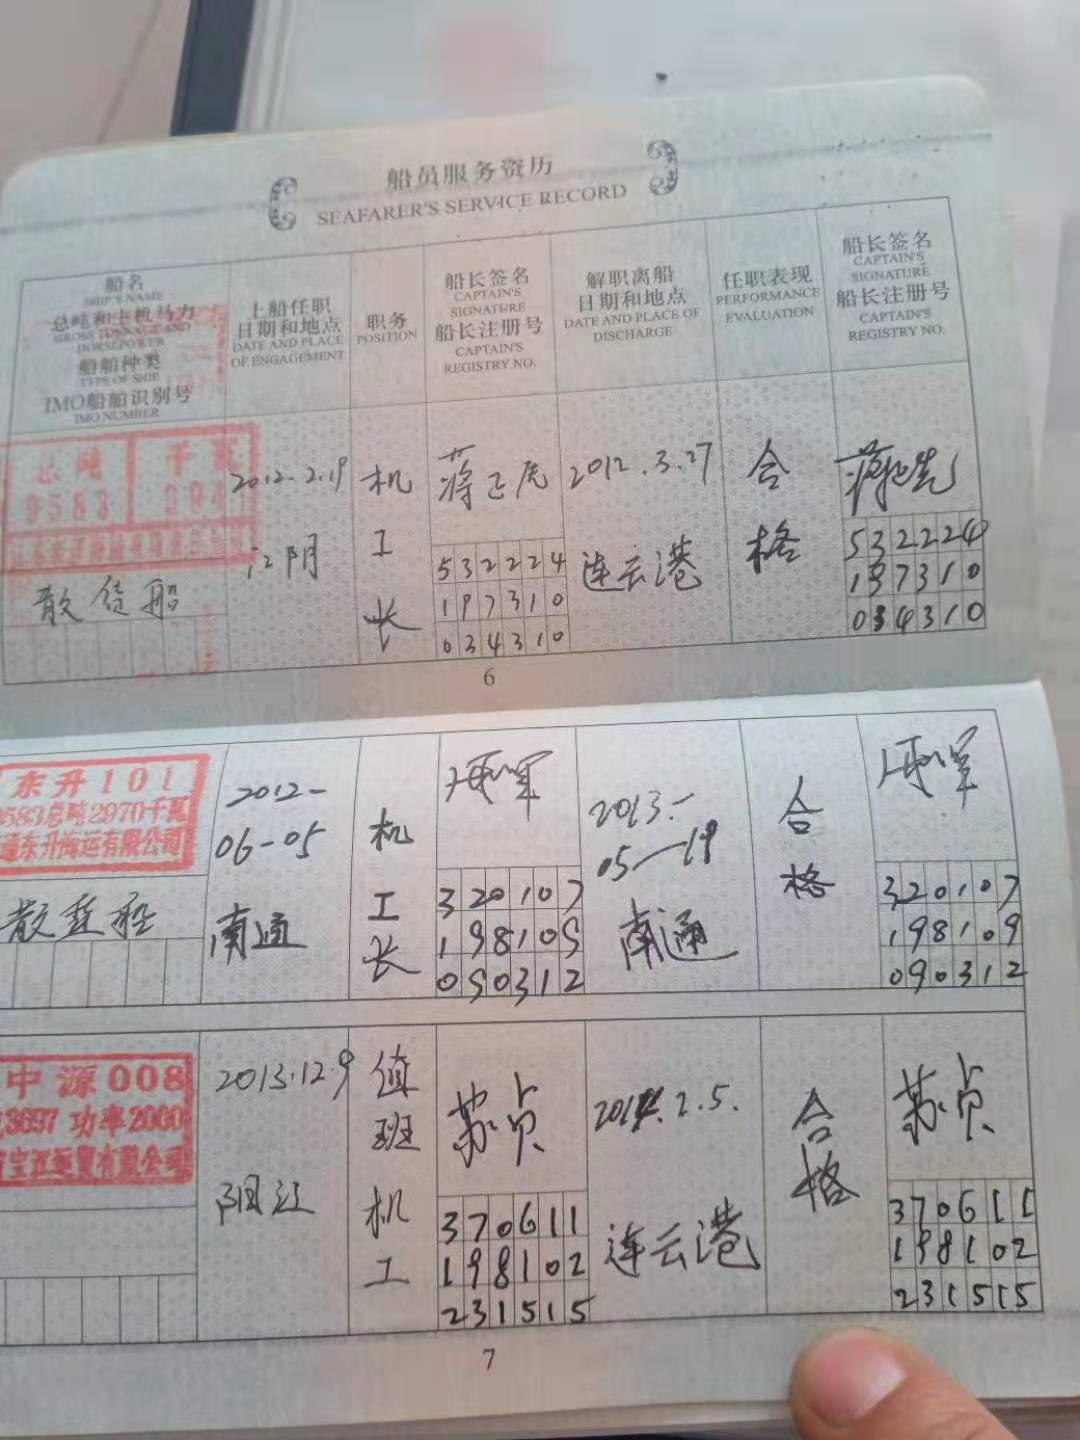 船员服务资历
SEAFARER'S SERVICE RECORD
船名
SHIP'S NAME
总吨和主机马力
GROSS TONNAGE AND
HORSEPOWER
船舶种类
TYPE OF SHIP
IMO船舶识别号
IMO NUMBER
上船任职
日期和地点
DATE AND PLACE
OF ENGAGEMENT
职务
POSITION
船长签名
CAPTAIN'S
SIGNATURE
船长注册号
CAPTAIN'S
REGISTRY NO.
解职离船
日期和地点
DATE AND PLACE OF
DISCHARGE
任职表现
PERFORMANCE
EVALUATION
船长签名
CAPTAIN'S
SIGNATURE
船长注册号
CAPTAIN'S
REGISTRY NO.
总吨
9583
千瓦
散货船
2012.2.19
江阴
机
工
长
532224
197310
034310
2012.3.27
连云港
合
格
532224
197310
034310
6
东升101
583总吨2970千瓦
通东升海运有限公司
散货船
2012-
06-05
南通
机
工
长
320107
198109
090312
2013-
05-19
南通
合
格
320107
198109
090312
中源008
3697 功率2000
2013.12.9
阳江
值
班
机
工
苏贞
370611
198102
231515
2014.2.5.
连云港
合
格
苏贞
370611
198102
231515
7